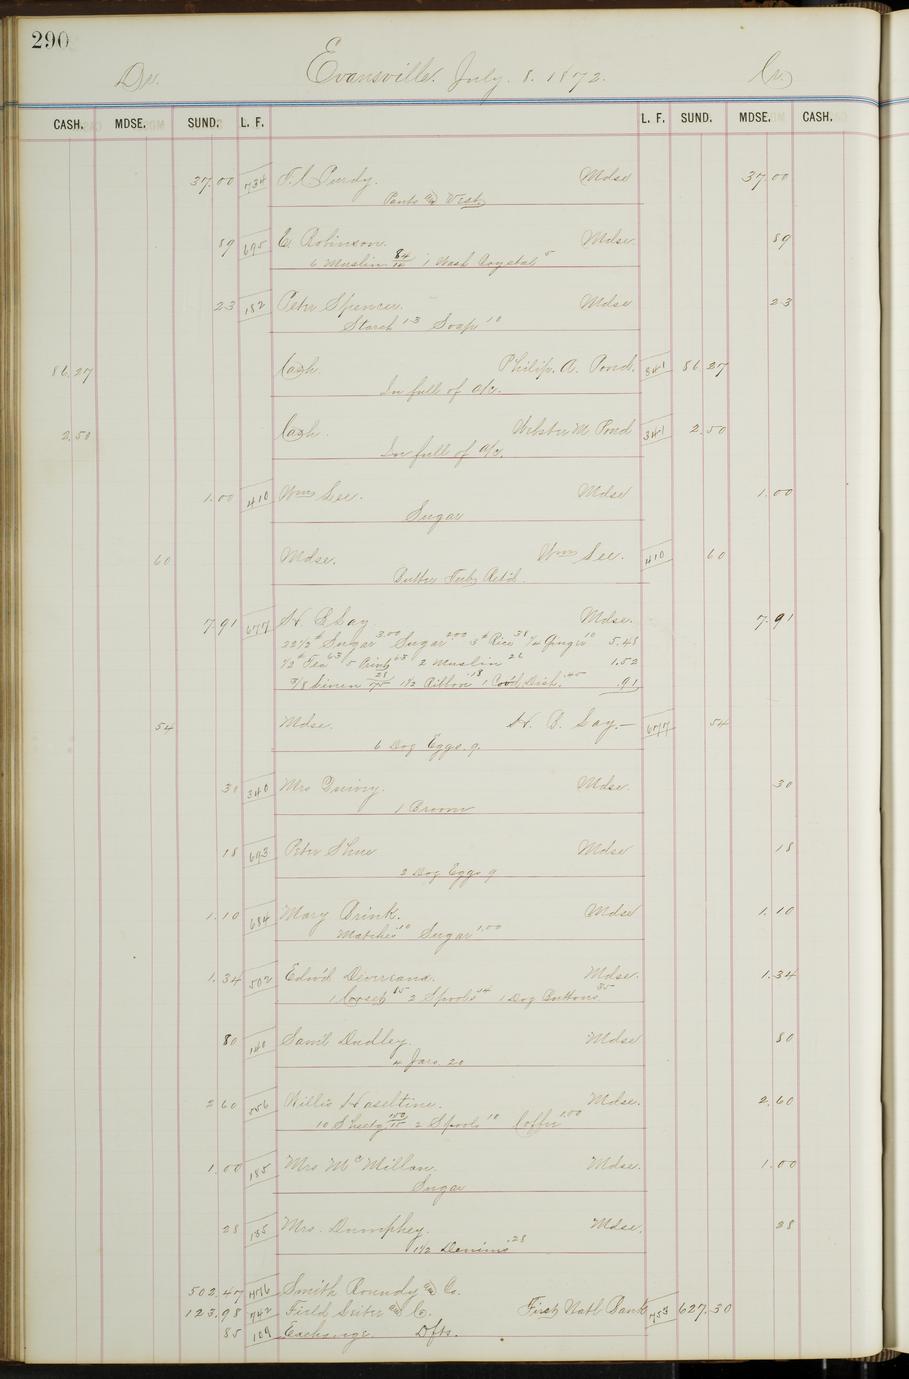 290
Dr. Evansville. July. 8. 1872. Cr
CASH. MDSE. SUND. L. F. L. F. SUND. MDSE. CASH.
37.00 734 Purdy. Mdse 37.00
Pants & Vest
89 695 E Robinson. Mdse 89
6 Muslin 84/14 1 Wash Crystal 5
23 152 Peter Spencer. Mdse 23
Starch 13 Soap 10
86.27 Cash. Philip. A. Pond. 341 86.27
In full of a/c.
2.50 Cash. Webster M. Pond 341 2.50
In full of a/c.
1.00 410 Wm See. Mdse 1.00
Sugar
60 Mdse. Wm See. 410 60
Butter Ret'd.
7.91 677 H. B. Say Mdse. 7.91
22 1/2 # Sugar 3.00 Sugar 2.00 3 # Rice 38 Ginger 10 5.48
1/2 # Tea 63 5 Print 63 2 Muslin 26 1.52
Linen 1 1/2 Ribbon .18 1 Cov'd Dish. .45 .91
54 Mdse. H. B. Say 677 54
6 Doz Eggs. 9.
30 340 Mrs Mdse. 30
1 Broom
18 693 Peter Shue Mdse 18
2 Doz Eggs 9
1.10 684 Mary Brink. Mdse 1.10
Matches 10 Sugar 1.00
1.34 502 Edw'd Mdse. 1.34
1 Corset 85 2 Spools 14 1 Doz Buttons 35
80 140 Sam'l Dudley. Mdse 80
4 Jars. 20
2.60 556 Willis Haseltine. Mdse. 2.60
10 Sheetg 150/15 2 Spools 10 Coffee 1.00
1.00 185 Mrs McMillan. Mdse. 1.00
Sugar
28 135 Mrs. Dumphey. Mdse. 28
1 1/2 Denims .28
502.47 Smith Roundy & Co.
123.98 742 Field Leiter & Co. First Nat'l Bank 753 627.30
85 109 Exchange. Dfts.